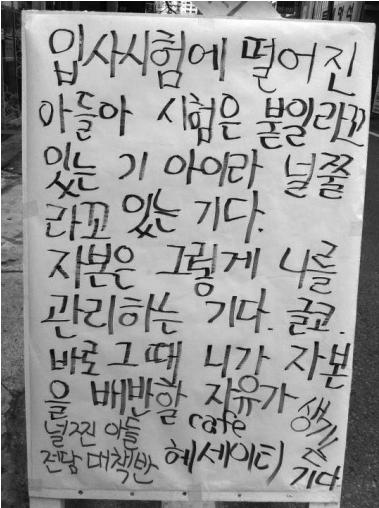 입사시험에 떨어진
아들아 시험은 붙일라꼬
있는 기 아이라 널쭐
라꼬 있는 기다.
자본은 그렇게 니를
관리하는 기다. 글코.
바로 그 때 니가 자본
을 배반할 자유가 생기는
널찐 아들 cafe 기다
전담 대책반 헤세이티